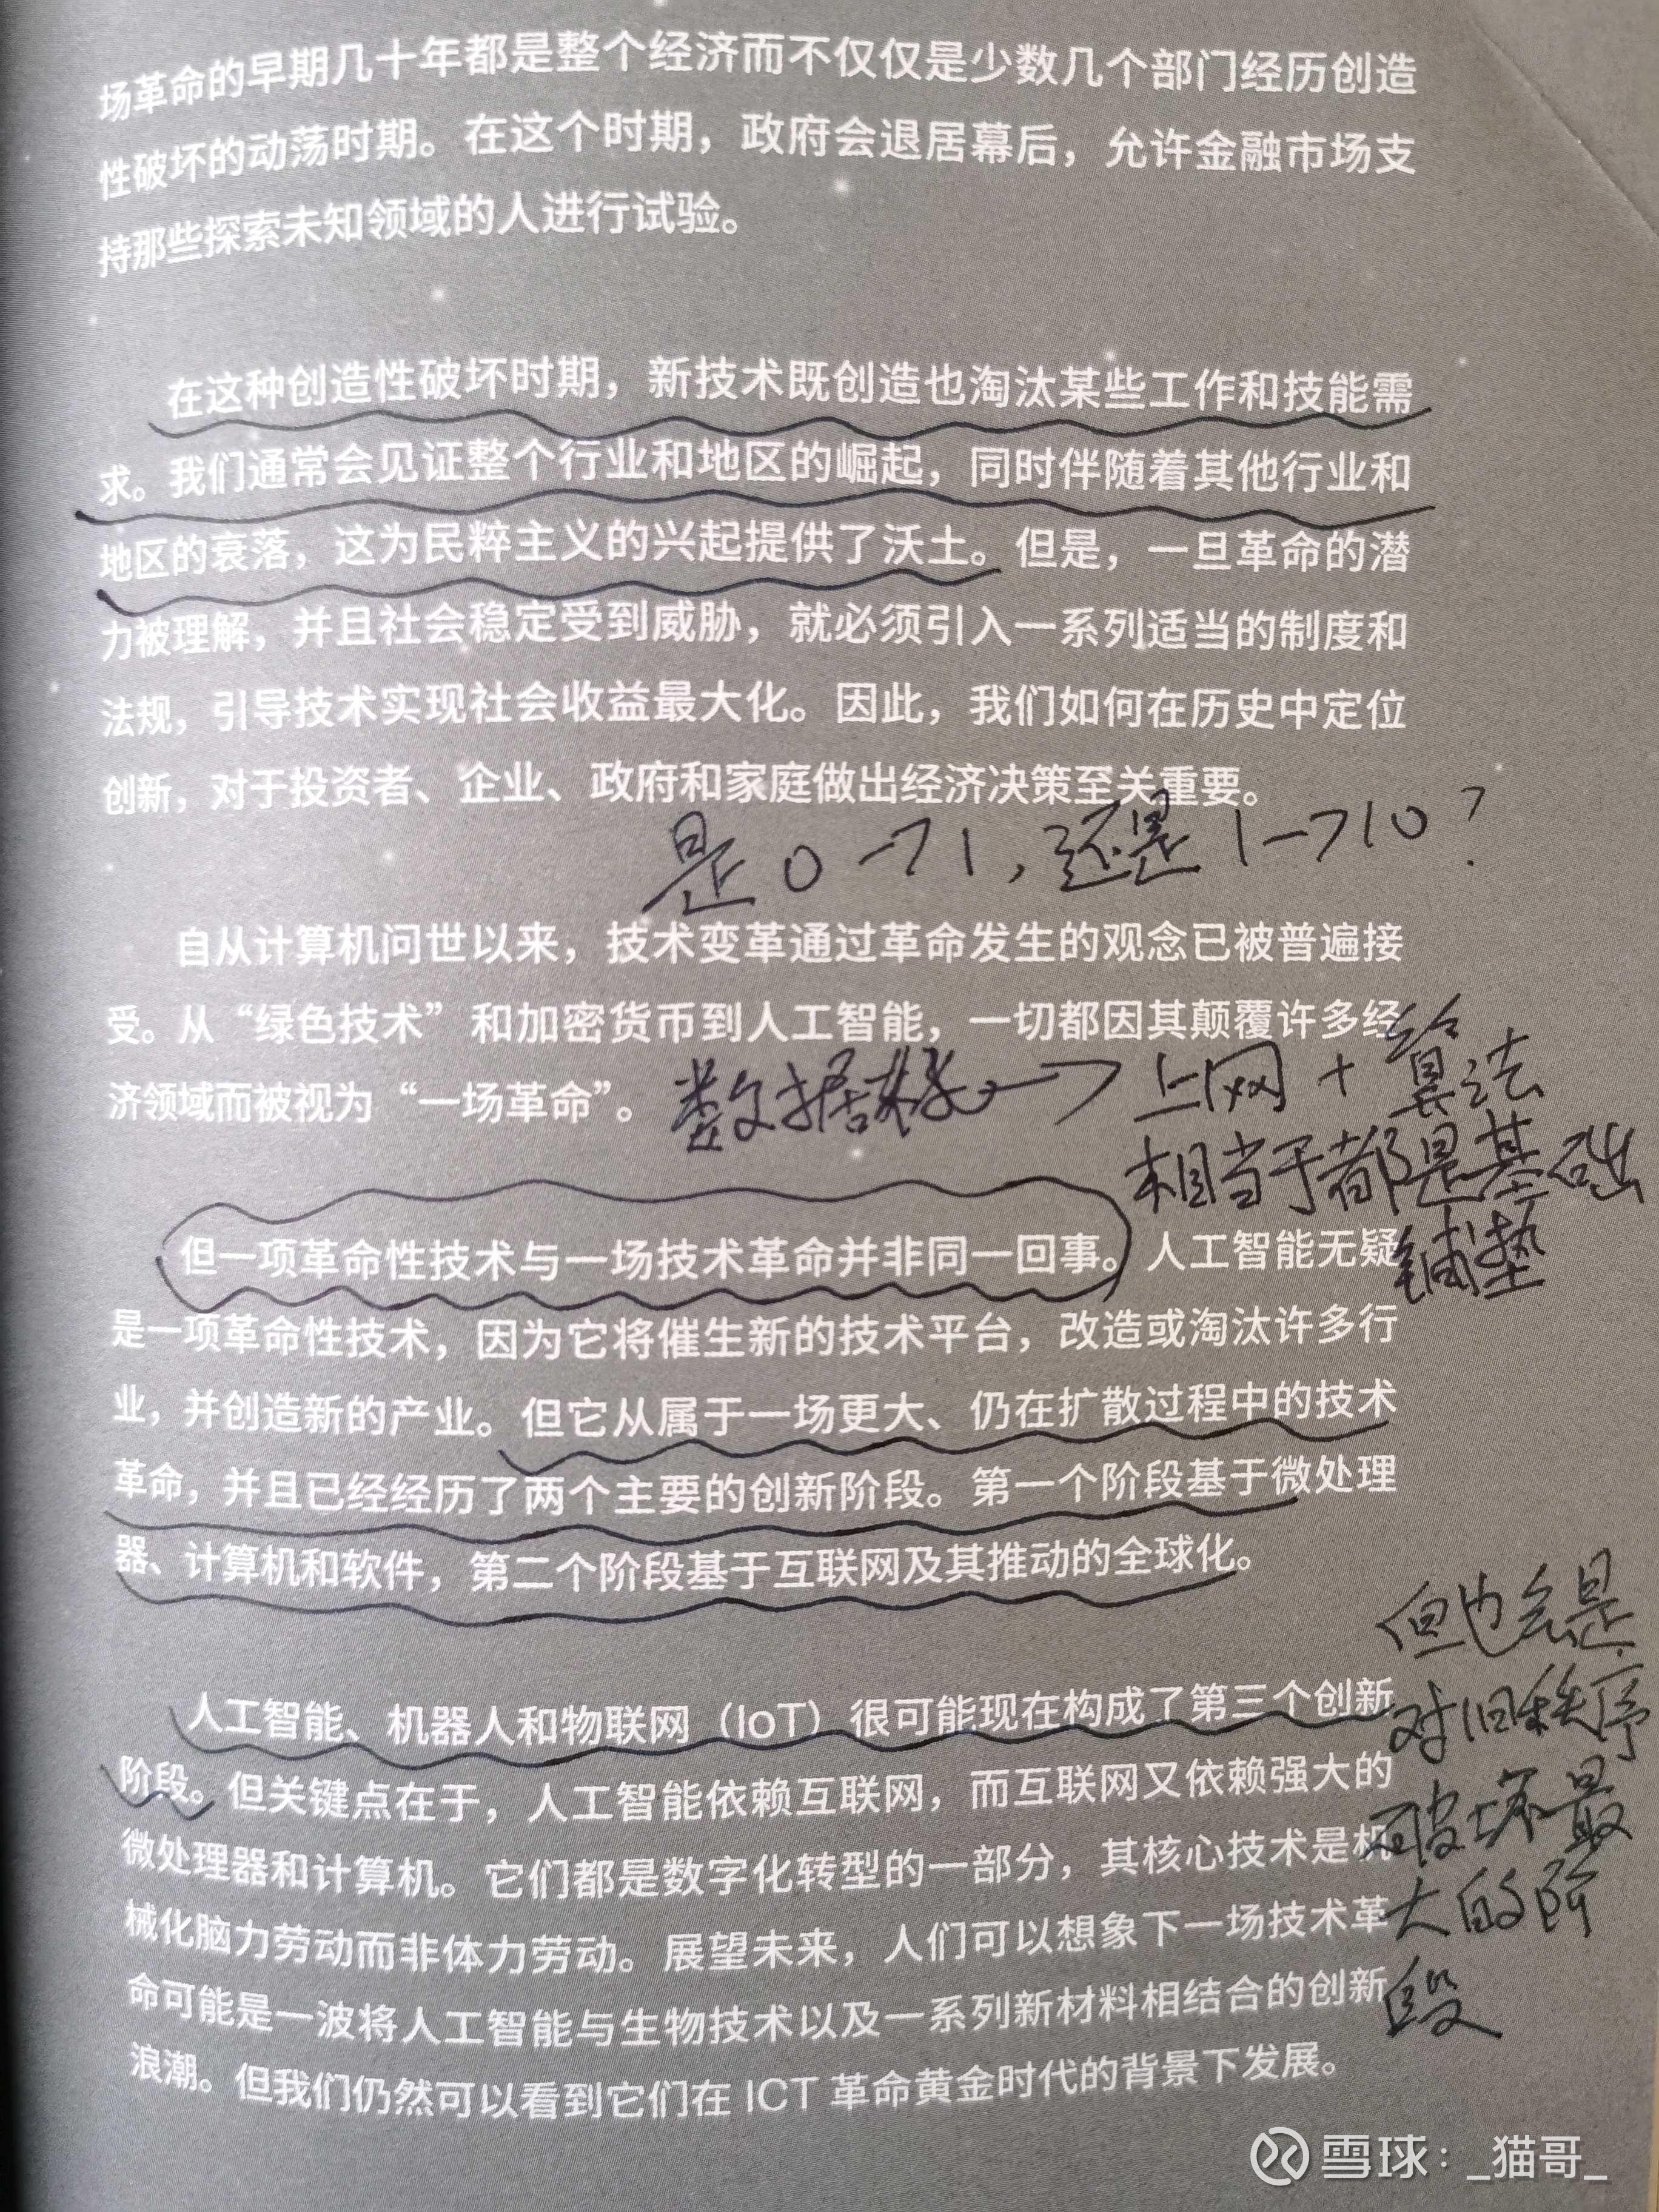 场革命的早期几十年都是整个经济而不仅仅是少数几个部门经历创造
性破坏的动荡时期。在这个时期，政府会退居幕后，允许金融市场支
持那些探索未知领域的人进行试验。
在这种创造性破坏时期，新技术既创造也淘汰某些工作和技能需
求。我们通常会见证整个行业和地区的崛起，同时伴随着其他行业和
地区的衰落，这为民粹主义的兴起提供了沃土。但是，一旦革命的潜
力被理解，并且社会稳定受到威胁，就必须引入一系列适当的制度和
法规，引导技术实现社会收益最大化。因此，我们如何在历史中定位
创新，对于投资者、企业、政府和家庭做出经济决策至关重要。
是0→1，还是1→10？
自从计算机问世以来，技术变革通过革命发生的观念已被普遍接
受。从“绿色技术”和加密货币到人工智能，一切都因其颠覆许多经
济领域而被视为“一场革命”。
数据 → 上网 + 算法
相当于都是基础
铺垫
但一项革命性技术与一场技术革命并非同一回事。人工智能无疑
是一项革命性技术，因为它将催生新的技术平台，改造或淘汰许多行
业，并创造新的产业。但它从属于一场更大、仍在扩散过程中的技术
革命，并且已经经历了两个主要的创新阶段。第一个阶段基于微处理
器、计算机和软件，第二个阶段基于互联网及其推动的全球化。
人工智能、机器人和物联网（IoT）很可能现在构成了第三个创新
阶段。但关键点在于，人工智能依赖互联网，而互联网又依赖强大的
微处理器和计算机。它们都是数字化转型的一部分，其核心技术是机
械化脑力劳动而非体力劳动。展望未来，人们可以想象下一场技术革
命可能是一波将人工智能与生物技术以及一系列新材料相结合的创新
浪潮。但我们仍然可以看到它们在 ICT 革命黄金时代的背景下发展。
但也会是
对旧秩序
破坏最
大的阶
段
雪球：_猫哥_